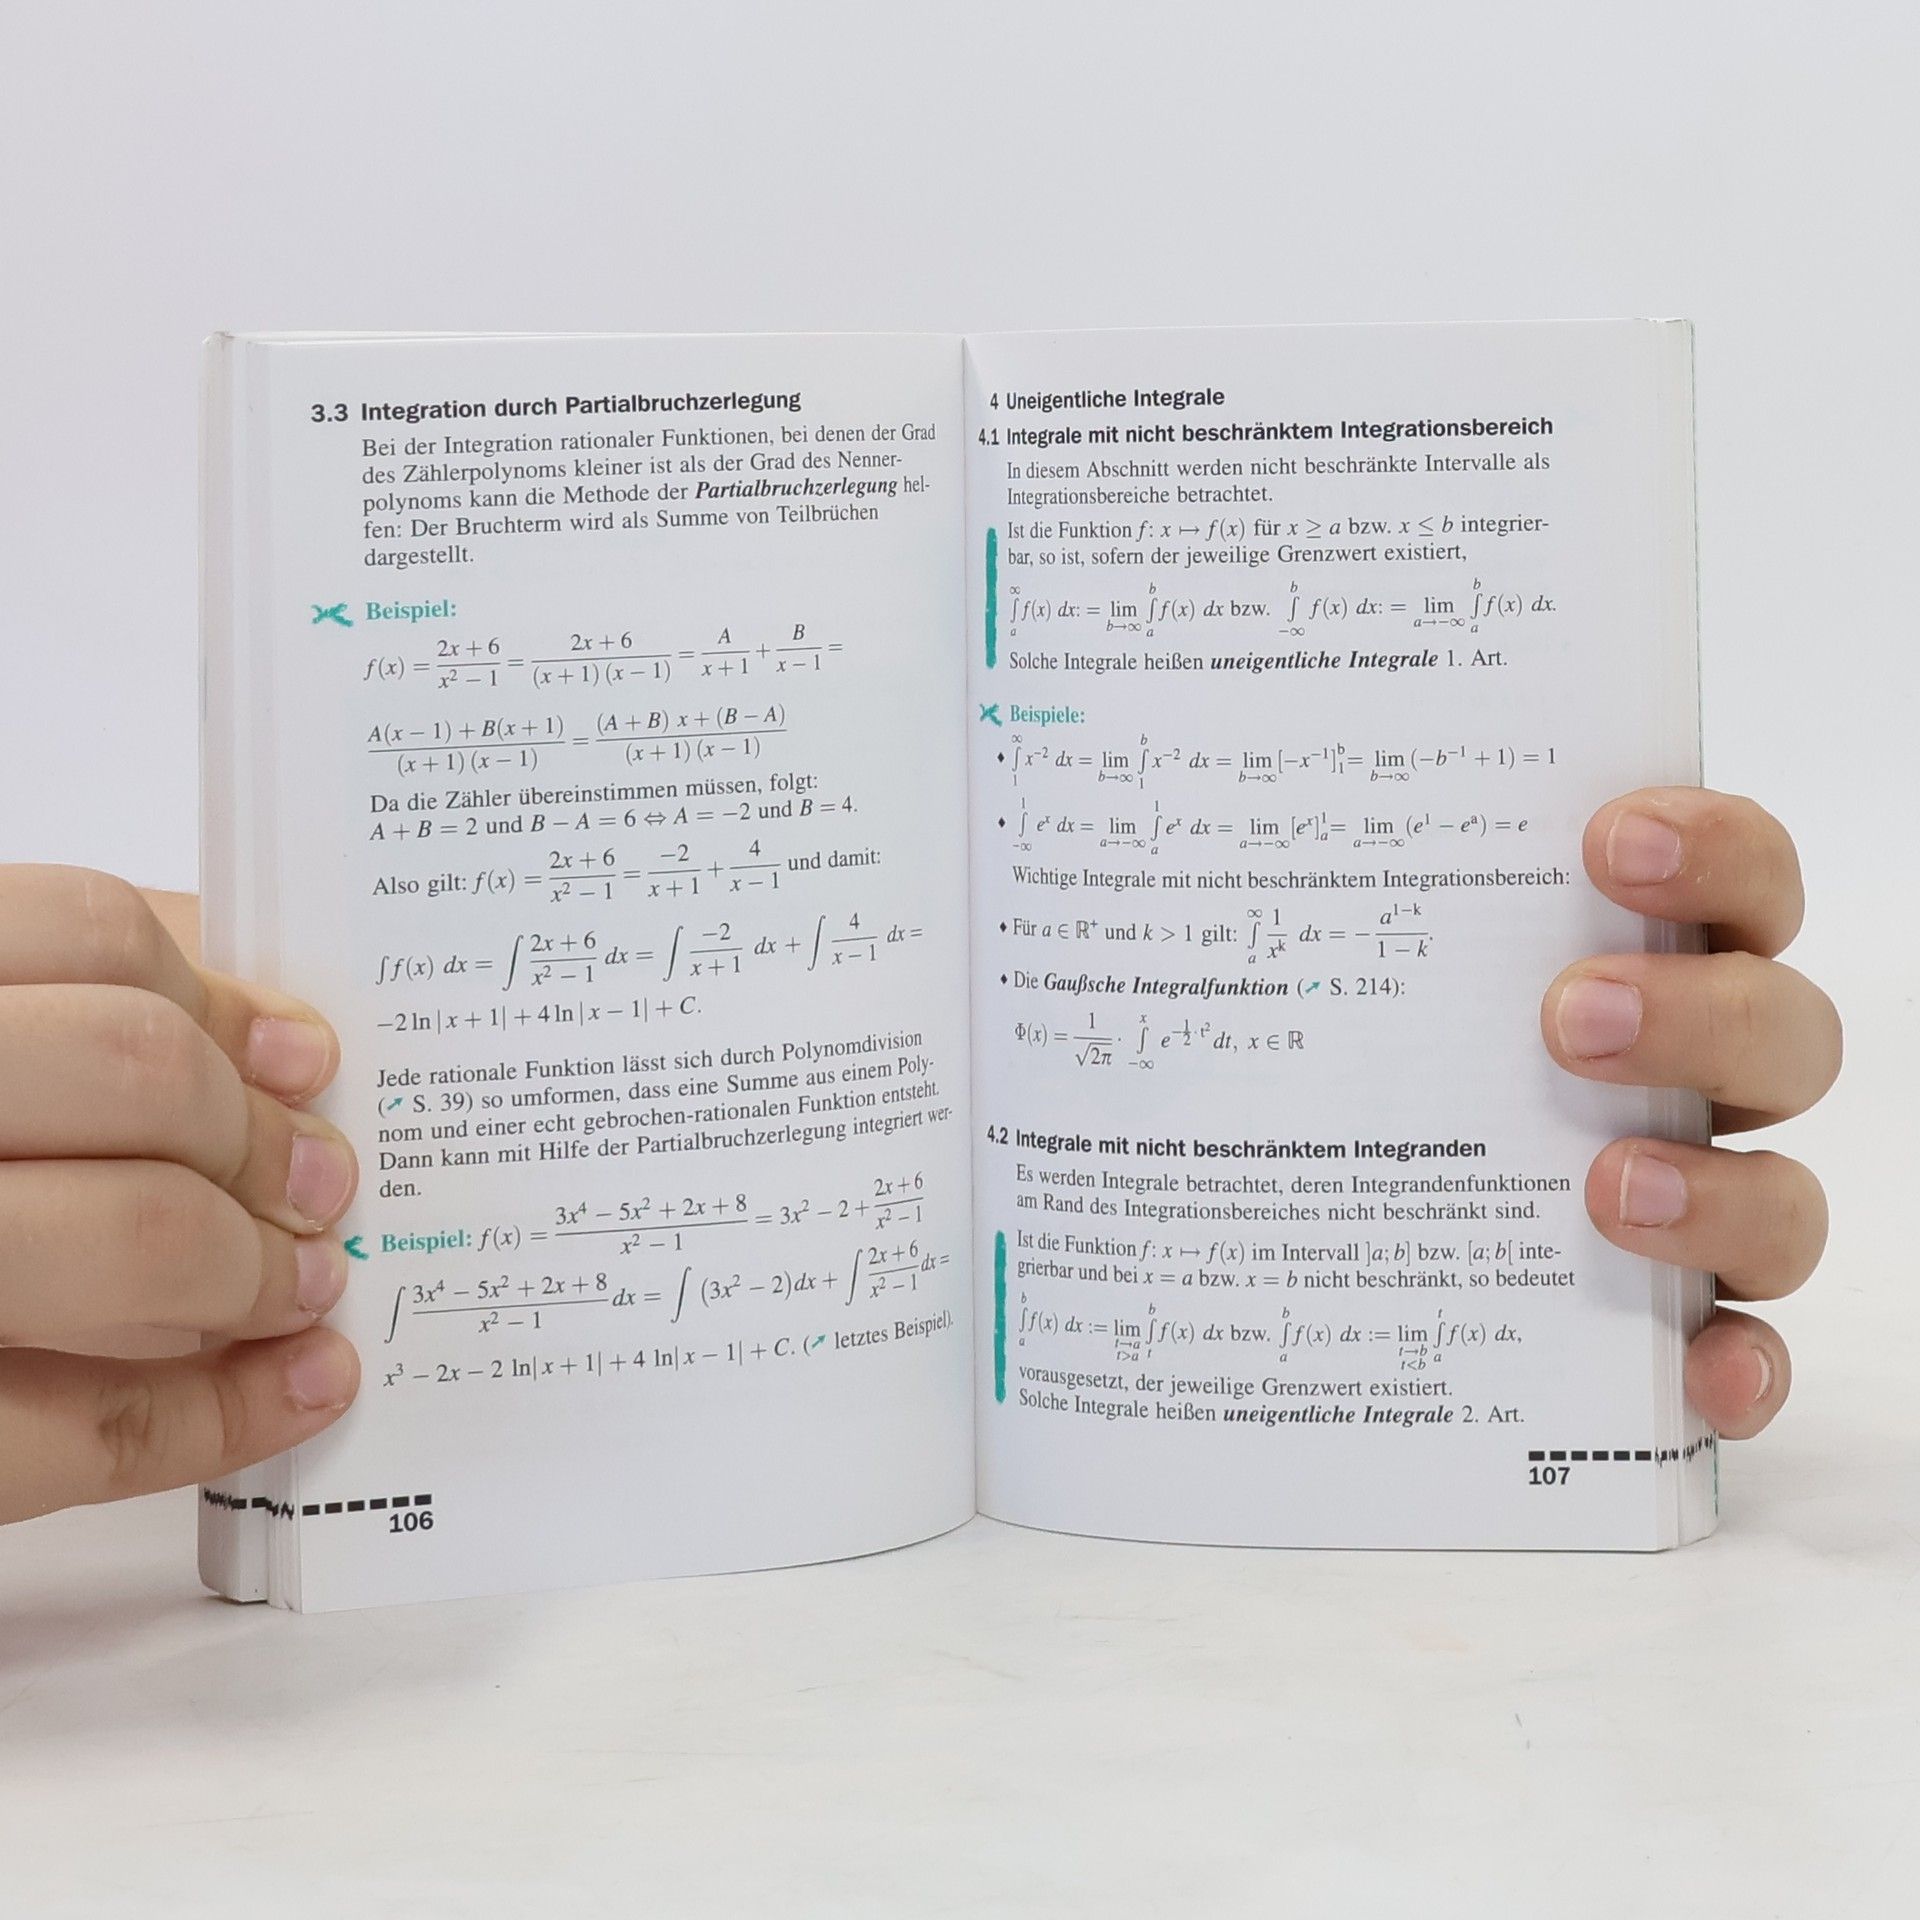 3.3 Integration durch Partialbruchzerlegung
Bei der Integration rationaler Funktionen, bei denen der Grad
des Zählerpolynoms kleiner ist als der Grad des Nenner-
polynoms kann die Methode der Partialbruchzerlegung hel-
fen: Der Bruchterm wird als Summe von Teilbrüchen
dargestellt.
Beispiel:
f(x) = (2x + 6)/(x² − 1) = (2x + 6)/((x + 1)(x − 1)) = A/(x + 1) + B/(x − 1) =
(A(x − 1) + B(x + 1))/((x + 1)(x − 1)) = ((A + B) x + (B − A))/((x + 1)(x − 1))
Da die Zähler übereinstimmen müssen, folgt:
A + B = 2 und B − A = 6 ⇔ A = −2 und B = 4.
Also gilt: f(x) = (2x + 6)/(x² − 1) = −2/(x + 1) + 4/(x − 1) und damit:
∫f(x) dx = ∫ (2x + 6)/(x² − 1) dx = ∫ −2/(x + 1) dx + ∫ 4/(x − 1) dx =
−2 ln|x + 1| + 4 ln|x − 1| + C.
Jede rationale Funktion lässt sich durch Polynomdivision
(↗ S. 39) so umformen, dass eine Summe aus einem Poly-
nom und einer echt gebrochen-rationalen Funktion entsteht.
Dann kann mit Hilfe der Partialbruchzerlegung integriert wer-
den.
Beispiel: f(x) = (3x⁴ − 5x² + 2x + 8)/(x² − 1) = 3x² − 2 + (2x + 6)/(x² − 1)
∫ (3x⁴ − 5x² + 2x + 8)/(x² − 1) dx = ∫ (3x² − 2)dx + ∫ (2x + 6)/(x² − 1) dx =
x³ − 2x − 2 ln|x + 1| + 4 ln|x − 1| + C. (↗ letztes Beispiel).
106
4 Uneigentliche Integrale
4.1 Integrale mit nicht beschränktem Integrationsbereich
In diesem Abschnitt werden nicht beschränkte Intervalle als
Integrationsbereiche betrachtet.
Ist die Funktion f: x ↦ f(x) für x ≥ a bzw. x ≤ b integrier-
bar, so ist, sofern der jeweilige Grenzwert existiert,
∫_a^∞ f(x) dx: = lim_{b→∞} ∫_a^b f(x) dx bzw. ∫_{−∞}^b f(x) dx: = lim_{a→−∞} ∫_a^b f(x) dx.
Solche Integrale heißen uneigentliche Integrale 1. Art.
Beispiele:
♦ ∫_1^∞ x⁻² dx = lim_{b→∞} ∫_1^b x⁻² dx = lim_{b→∞} [−x⁻¹]_1^b = lim_{b→∞} (−b⁻¹ + 1) = 1
♦ ∫_{−∞}^1 eˣ dx = lim_{a→−∞} ∫_a^1 eˣ dx = lim_{a→−∞} [eˣ]_a^1 = lim_{a→−∞} (e¹ − eᵃ) = e
Wichtige Integrale mit nicht beschränktem Integrationsbereich:
♦ Für a ∈ ℝ⁺ und k > 1 gilt: ∫_a^∞ 1/xᵏ dx = − a^{1−k}/(1 − k).
♦ Die Gaußsche Integralfunktion (↗ S. 214):
Φ(x) = 1/√(2π) · ∫_{−∞}^x e^{−½·t²} dt, x ∈ ℝ
4.2 Integrale mit nicht beschränktem Integranden
Es werden Integrale betrachtet, deren Integrandenfunktionen
am Rand des Integrationsbereiches nicht beschränkt sind.
Ist die Funktion f: x ↦ f(x) im Intervall ]a; b] bzw. [a; b[ inte-
grierbar und bei x = a bzw. x = b nicht beschränkt, so bedeutet
∫_a^b f(x) dx := lim_{t→a, t>a} ∫_t^b f(x) dx bzw. ∫_a^b f(x) dx := lim_{t→b, t<b} ∫_a^t f(x) dx,
vorausgesetzt, der jeweilige Grenzwert existiert.
Solche Integrale heißen uneigentliche Integrale 2. Art.
107